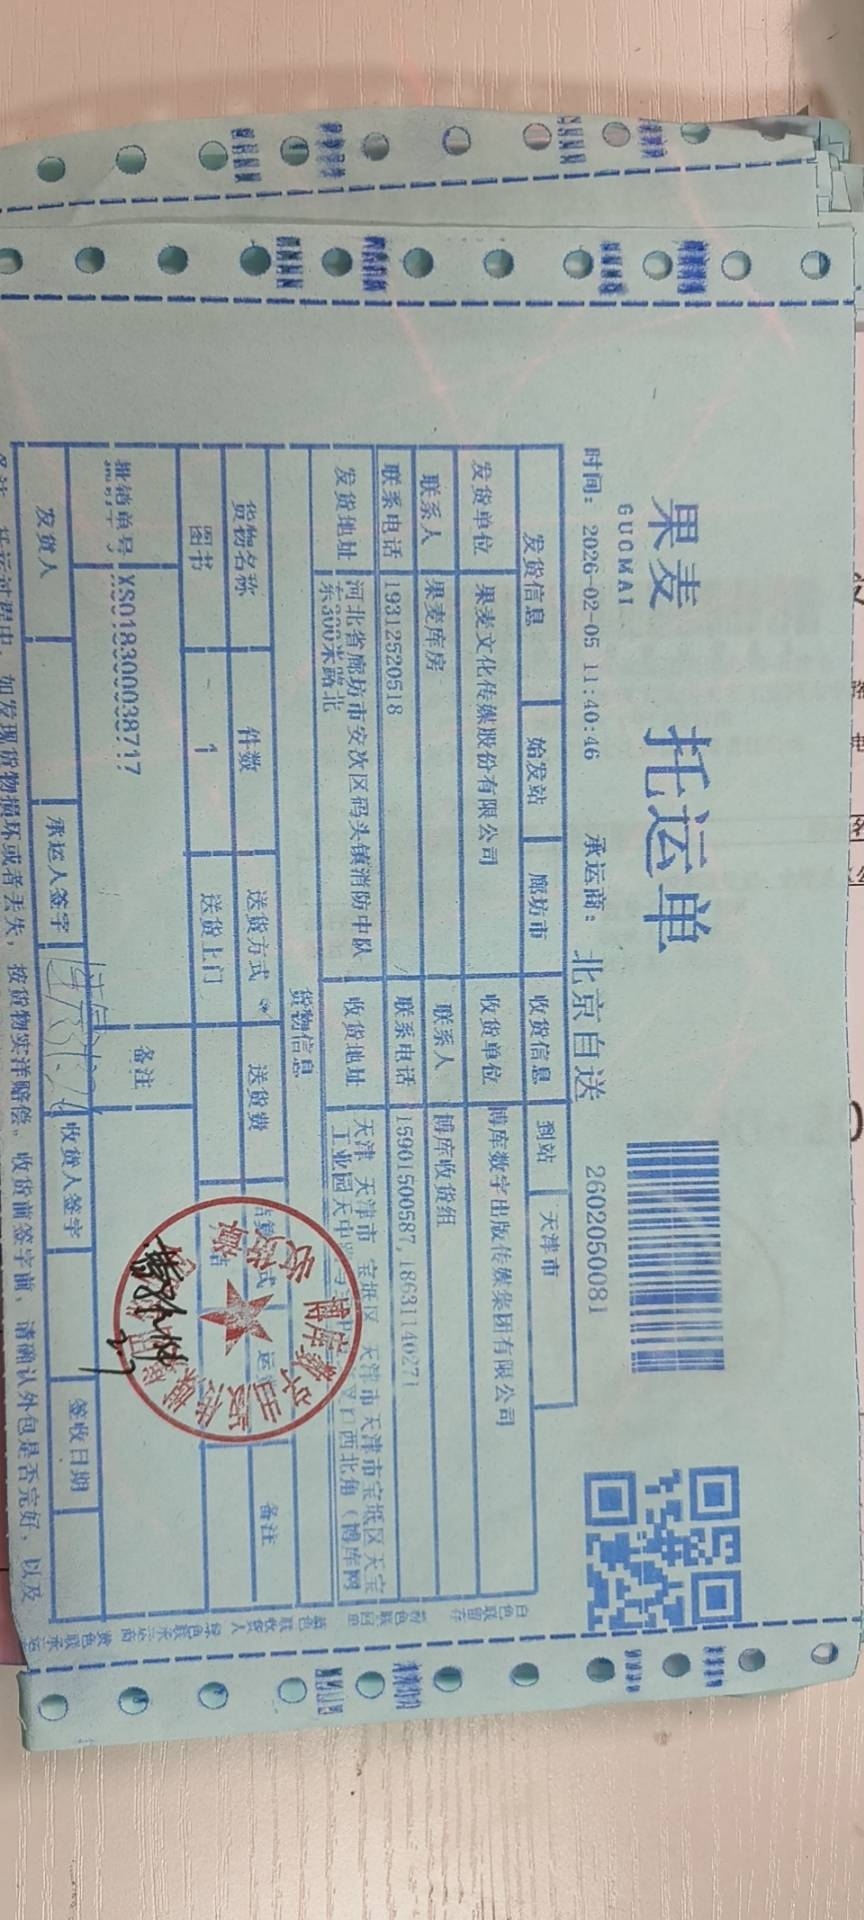 果麦
GUOMAI
托运单
时间: 2026-02-05 11:40:46 承运商: 北京自送 2602050081
发货信息 始发站 廊坊市 收货信息 到站 天津市
发货单位 果麦文化传媒股份有限公司 收货单位 博库数字出版传媒集团有限公司
联系人 果麦库房 联系人 博库收货组
联系电话 19312520518 联系电话 15901500587, 18631140271
发货地址 河北省廊坊市安次区码头镇消防中队
东300米路北
收货地址 天津 天津市 宝坻区 天津市天津市宝坻区天宝
工业园天中 西北角 (博库网
货物信息
货物名称 件数 送货方式 送货费 备注
图书 1 送货上门
报销单号 XS018300038717 备注
发货人 承运人签字 收货人签字 签收日期
托运过程中, 如发现货物损坏或者丢失, 按货物实洋赔偿。收货前签字前, 请确认外包是否完好, 以及